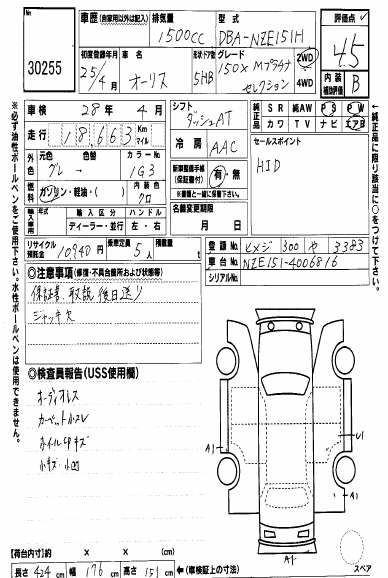 30255
車歴 (自家用以外は記入)
排気量 1500cc
型式 DBA-NZE151H
評価点 4.5
初度登録年月 25/4月
車名 オーリス
形状・ドア数 5HB
グレード 150X Mプラチナセレクション
2WD
4WD
内装補助評価 B
車検 28年 4月
シフト ダッシュAT
純正品 SR 純AW PS PW
カワ TV ナビ エアB
走行 18,663 Km マイル
冷房 AAC
セールスポイント
HID
外色 元色 グレー → 色替
カラーNo. 1G3
新車整備手帳(保証書付) 有・無
※書類と一緒に保管下さい。
燃料 ガソリン・軽油・( )
内装色 クロ
輸入車用 年式 輸入区分 ハンドル
ディーラー・並行 左・右
名義変更期限 月 日
リサイクル預託金 10940円
乗車定員 5人
積載量 t
登録No. ヒメジ 300 や 3383
車台No. NZE151-4006816
シリアルNo.
◎注意事項 (修復・不具合箇所および状態等)
保証書、取説 後日送り
ジャッキ欠
◎検査員報告 (USS使用欄)
オーディオレス
カーペット小スレ
ホイールCPキズ
小キズ・小凹
A1
U1
A1
A1
スペア
【荷台内寸】 × × (cm)
長さ 424cm 幅 176cm 高さ 151cm ←(車検証上の寸法)
※必ず油性ボールペンをご使用下さい。水性ボールペンは使用できません。
↑純正品に限り該当に○をつけて下さい。